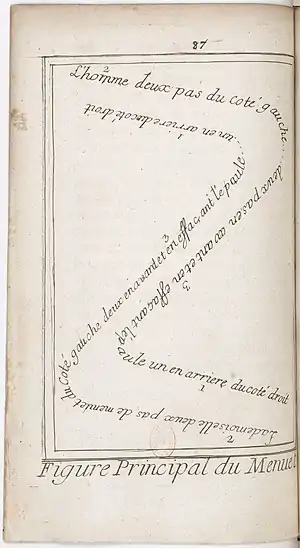 87
L'homme deux pas du coté gauche...deux pas en avant et en effaçant l'epaule un en arriere du coté droit
2
3
1
Lademoiselle deux pas de meme du coté gauche deux en avant et en effaçant l'epaule...un en arriere du coté droit
2
3
1
Figure Principal du Menuet